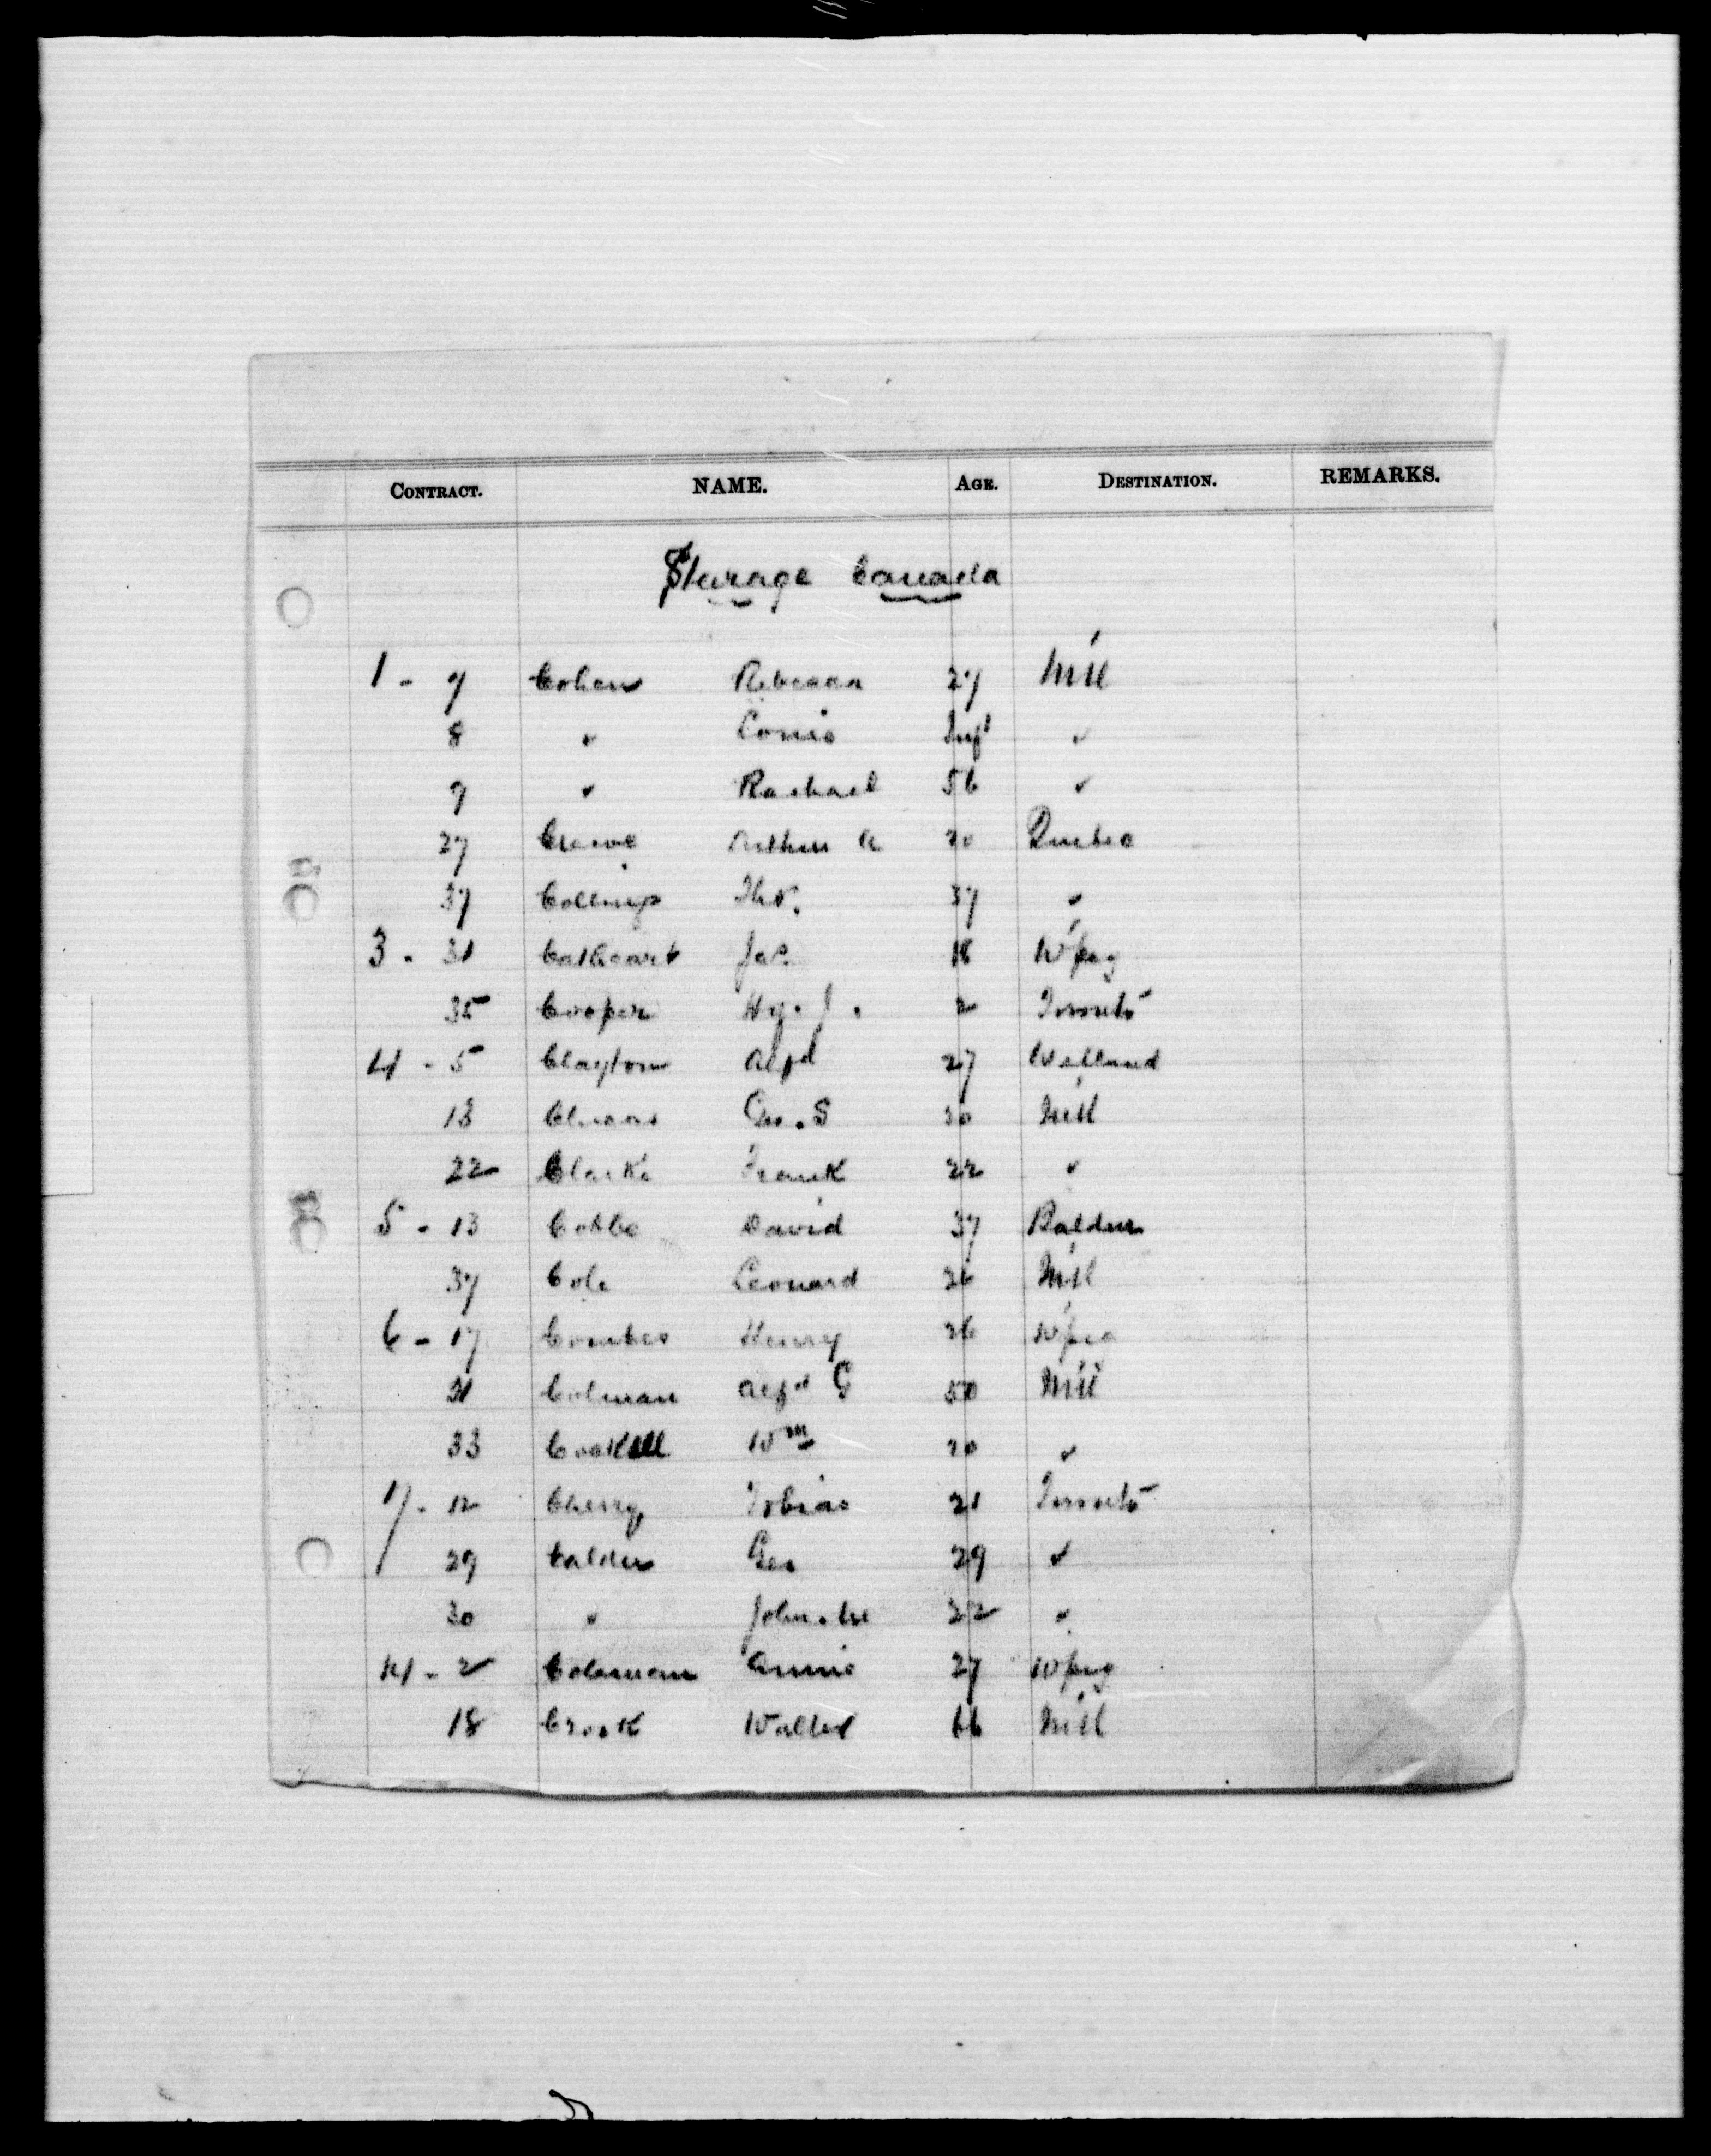 CONTRACT. NAME. AGE. DESTINATION. REMARKS.
Steerage Canada
1 - 7 Cohen Rebecca 27 Mtl
8 " Louis Inft "
9 " Rachael 56 "
27 Crewe Arthur A 20 Quebec
37 Collings Tho. 37 "
3 - 31 Cathcart Jas. 18 Wpeg
35 Cooper Hy. J. 2 Toronto
4 - 5 Clayton Alfd 27 Welland
13 Geo. S 30 Mtl
22 Clarke Frank 22 "
5 - 13 David 37 Baldur
37 Cole Leonard 26 Mtl
6 - 17 Combes Henry 26 Wpeg
31 Colman Alfd G 50 Mtl
33 Wm 20 "
7 - 12 Cherry Tobias 21 Toronto
29 Calder Geo 29 "
30 " John. W 22 "
14 - 2 Coleman Annie 27 Wpeg
18 Crook Walter Mtl